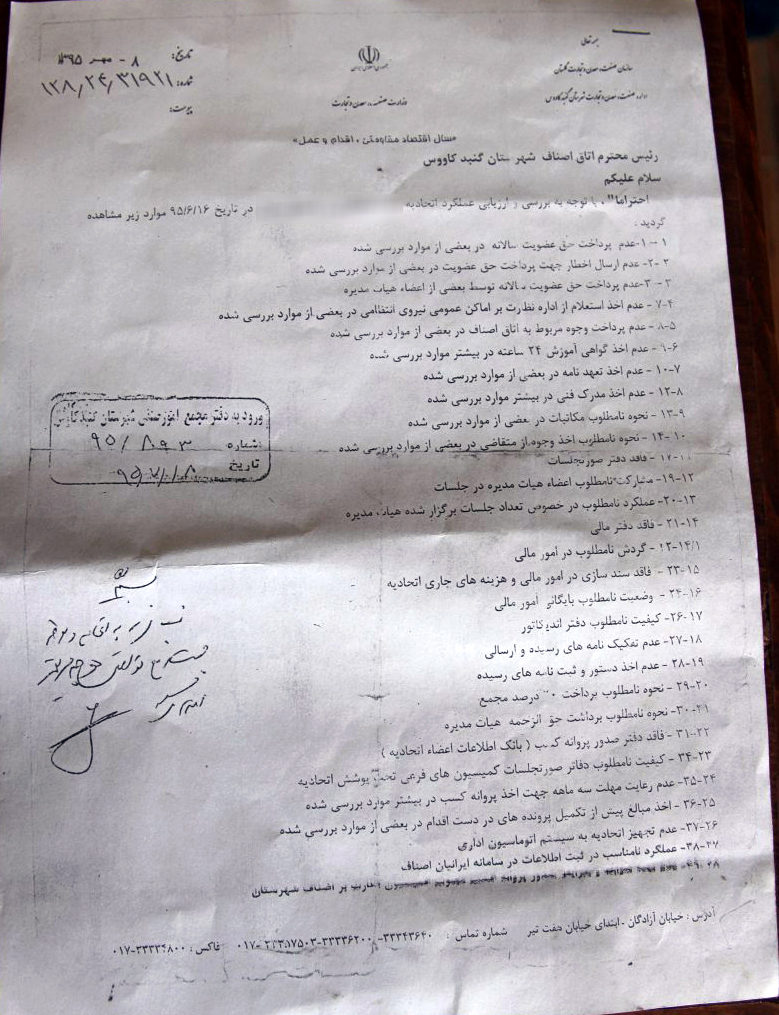 بسمه تعالی
جمهوری اسلامی ایران
وزارت صنعت، معدن و تجارت
سازمان صنعت، معدن و تجارت گلستان
اداره صنعت، معدن و تجارت شهرستان گنبدکاووس
تاریخ: ۸ - مهر ۱۳۹۵
شماره: ۱۲۸/۲۴/۳۱۹۲۱
پیوست:
«سال اقتصاد مقاومتی، اقدام و عمل»
رئیس محترم اتاق اصناف شهرستان گنبد کاووس
سلام علیکم
احتراما"، با توجه به بررسی و ارزیابی عملکرد اتحادیه در تاریخ ۹۵/۶/۱۶ موارد زیر مشاهده
گردید.
۱-۱-عدم پرداخت حق عضویت سالانه در بعضی از موارد بررسی شده
۲-۲-عدم ارسال اخطار جهت پرداخت حق عضویت در بعضی از موارد بررسی شده
۳-۳-عدم پرداخت حق عضویت سالانه توسط بعضی از اعضاء هیات مدیره
۴-۷- عدم اخذ استعلام از اداره نظارت بر اماکن عمومی نیروی انتظامی در بعضی از موارد بررسی شده
۵-۸- عدم پرداخت وجوه مربوط به اتاق اصناف در بعضی از موارد بررسی شده
۶-۹- عدم اخذ گواهی آموزش ۲۴ ساعته در بیشتر موارد بررسی شده
۷-۱۰- عدم اخذ تعهد نامه در بعضی از موارد بررسی شده
۸-۱۲- عدم اخذ مدرک فنی در بیشتر موارد بررسی شده
۹-۱۳- نحوه نامطلوب مکاتبات در بعضی از موارد بررسی شده
۱۰-۱۴- نحوه نامطلوب اخذ وجوه از متقاضی در بعضی از موارد بررسی شده
۱۱-۱۷- فاقد دفتر صورتجلسات
۱۲-۱۹- مشارکت نامطلوب اعضاء هیات مدیره در جلسات
۱۳-۲۰- عملکرد نامطلوب در خصوص تعداد جلسات برگزار شده هیات مدیره
۱۴-۲۱- فاقد دفتر مالی
۱۴/۱- گردش نامطلوب در امور مالی
۱۵-۲۳- فاقد سند سازی در امور مالی و هزینه های جاری اتحادیه
۱۶-۲۴- وضعیت نامطلوب بایگانی امور مالی
۱۷-۲۶- کیفیت نامطلوب دفتر اندیکاتور
۱۸-۲۷- عدم تفکیک نامه های رسیده و ارسالی
۱۹-۲۸- عدم اخذ دستور و ثبت نامه های رسیده
۲۰-۲۹- نحوه نامطلوب پرداخت درصد مجمع
۲۱-۳۰- نحوه نامطلوب برداشت حق الزحمه هیات مدیره
۲۲-۳۱- فاقد دفتر صدور پروانه کسب ( بانک اطلاعات اعضاء اتحادیه )
۲۳-۳۴- کیفیت نامطلوب دفاتر صورتجلسات کمیسیون های فرعی تحت پوشش اتحادیه
۲۴-۳۵- عدم رعایت مهلت سه ماهه جهت اخذ پروانه کسب در بیشتر موارد بررسی شده
۲۵-۳۶- اخذ مبالغ پیش از تکمیل پرونده های در دست اقدام در بعضی از موارد بررسی شده
۲۶-۳۷- عدم تجهیز اتحادیه به سیستم اتوماسیون اداری
۲۷-۳۸- عملکرد نامناسب در ثبت اطلاعات در سامانه ایرانیان اصناف
بر اصناف شهرستان
ورود به دفتر مجمع امور صنفی شهرستان گنبدکاووس
شماره ۹۵/۸۹۳
تاریخ ۹۵/۷/۱۸
آدرس : خیابان آزادگان - ابتدای خیابان هفت تیر شماره تماس : ۳۳۳۴۳۶۴۰-۳۳۳۳۶۲۰۰ ۰۱۷- فاکس : ۳۳۳۳۴۸۰۰-۰۱۷